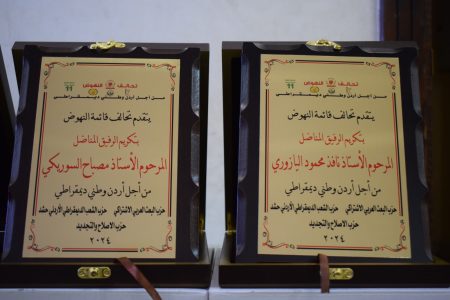 تحالف النهوض
من أجل أردن وطني ديمقراطي
يتقدم تحالف قائمة النهوض
بتكريم الرفيق المناضل
المرحوم الأستاذ مصباح السوريكي
من أجل أردن وطني ديمقراطي
حزب البعث العربي الاشتراكي حزب الشعب الديمقراطي الأردني حشد
حزب الاصلاح والتجديد
٢٠٢٤
تحالف النهوض
من أجل أردن وطني ديمقراطي
يتقدم تحالف قائمة النهوض
بتكريم الرفيق المناضل
المرحوم الأستاذ نافذ محمود اليازوري
من أجل أردن وطني ديمقراطي
حزب البعث العربي الاشتراكي حزب الشعب الديمقراطي الأردني حشد
حزب الاصلاح والتجديد
٢٠٢٤